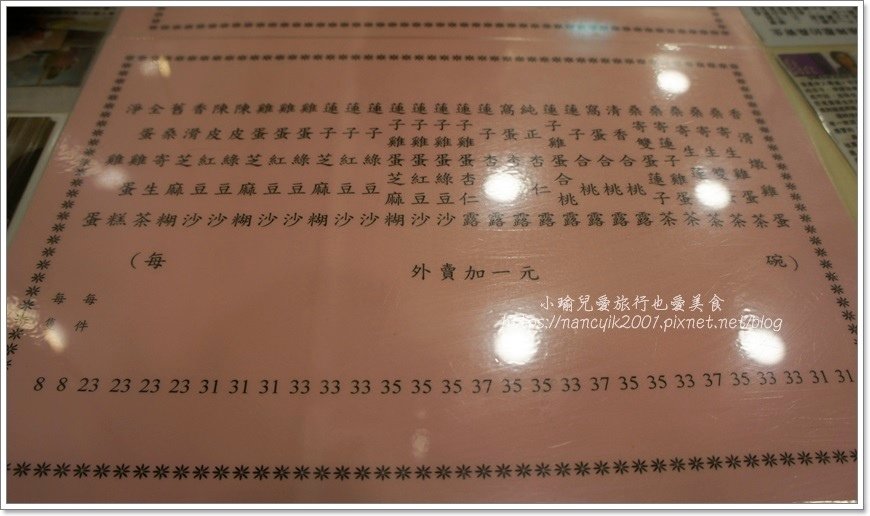 香滑燉雞蛋
桑寄生雞蛋茶
桑寄生雙蛋茶
桑寄生蓮子茶
桑寄蓮子雞蛋茶
桑寄雙蛋蓮子茶
清香合桃露
窩蛋合桃露
蓮子合桃露
蓮子雞蛋合桃露
純正杏仁露
窩蛋杏仁露
蓮子杏仁露
蓮子雞蛋杏仁露
蓮子雞蛋綠豆沙
蓮子雞蛋紅豆沙
蓮子雞蛋芝麻糊
蓮子綠豆沙
蓮子紅豆沙
蓮子芝麻糊
雞蛋綠豆沙
雞蛋紅豆沙
雞蛋芝麻糊
陳皮綠豆沙
陳皮紅豆沙
香滑芝麻糊
舊桑寄生茶
全蛋雞蛋糕
淨雞蛋
(每 外賣加一元 碗)
每件
每
8 8 23 23 23 23 31 31 31 33 33 33 35 35 35 37 35 35 33 37 35 35 33 37 35 33 33 31 31
小瑜兒愛旅行也愛美食
https://nancyik2001.pixnet.net/blog